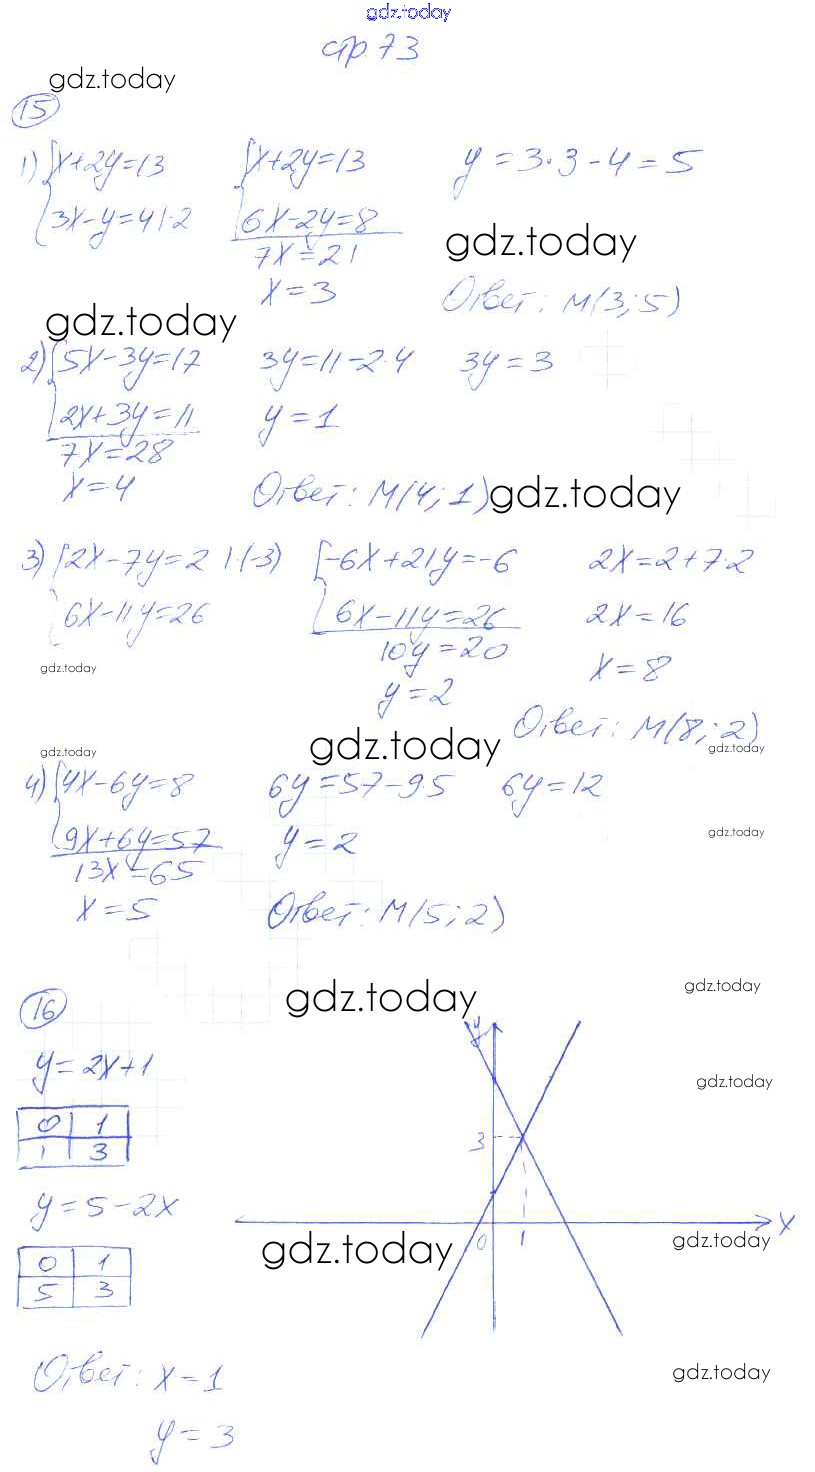 gdz.today
стр. 73
gdz.today
15
1) { x+2y=13   { x+2y=13   y = 3·3 – 4 = 5
{ 3x–y=4 |·2   { 6x–2y=8
gdz.today
7x = 21
x = 3
Ответ: M(3; 5)
gdz.today
2) { 5x–3y=17   3y=11–2·4   3y=3
{ 2x+3y=11   y = 1
7x=28
x=4   Ответ: M(4; 1)
gdz.today
3) { 2x–7y=2 | (-3)   { -6x+21y=-6   2x=2+7·2
{ 6x–11y=26   { 6x–11y=26   2x=16
10y=20   x=8
gdz.today
y=2
Ответ: M(8; 2)
gdz.today
gdz.today
gdz.today
4) { 4x–6y=8   6y=57–9·5   6y=12
{ 9x+6y=57   y = 2
gdz.today
13x=65
x = 5   Ответ: M(5; 2)
16
gdz.today
gdz.today
y
y = 2x+1
gdz.today
0 1
1 3
3
y = 5 – 2x
x
0 1
0 1
5 3
gdz.today
gdz.today
Ответ: x = 1
gdz.today
y = 3